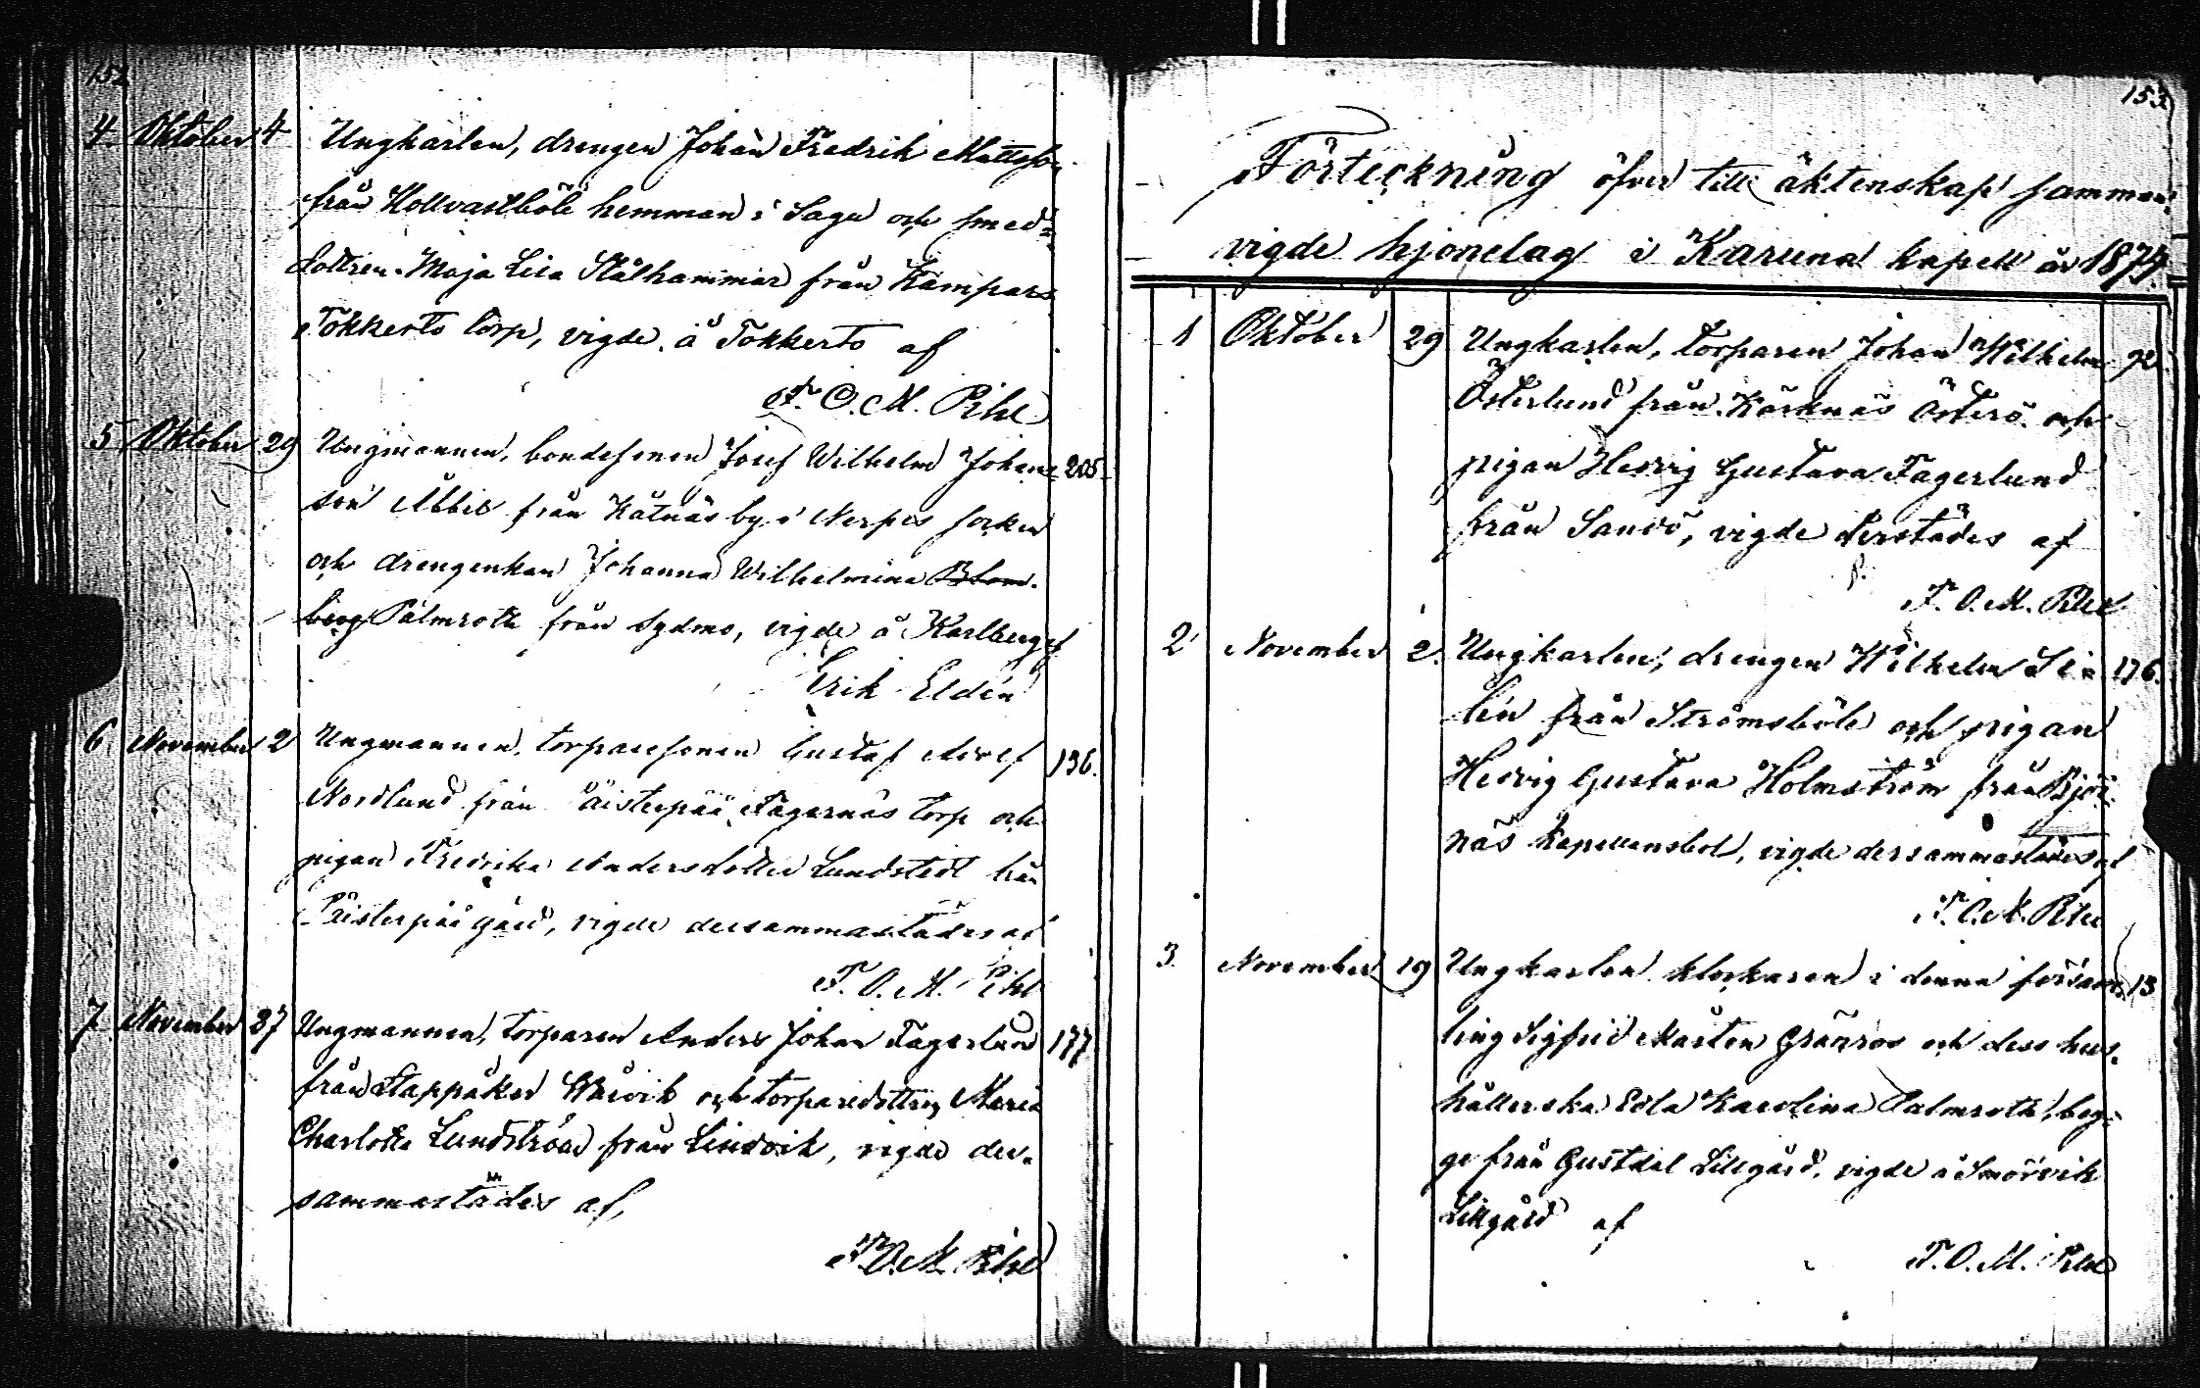 152
4. Oktober 4 Ungkarlen, drengen Johan Fredrik Mattsson
från Hollvastböle hemman i Sagu och smed-
dottren Maja Lisa Stålhammar från Kämpars
Tokkerto torp, vigde å Tokkerto af
F. O. M. Pihl
5. Oktober 29 Ungmannen, bondesonen Josef Wilhelm Johans- 205
son Abbil från Kåtnäs by i Nerpes socken
och drengenkan Johanna Wilhelmina Blom-
berg Palmroth från Sydmo, vigde å Karlberg af
Erik Eldén
6. November 2 Ungmannen, torparesonen Gustaf Adolf 136.
Nordlund från Päisterpää Fagernäs torp och
pigan Fredrika Andersdotter Lundstedt från
Päisterpää gård, vigde dersammastädes af
F. O. M. Pihl
7. November 27 Ungmannen, torparen Anders Johan Fagerlund 177
från Stappåker och torparedottren Maria
Charlotta Lundström från Lindvik, vigde der-
sammastädes af,
F. O. M. Pihl
153
Förteckning öfver till äktenskap samman-
vigde hjonelag i Karuna kapell år 1874.
1 Oktober 29 Ungkarlen, torparen Johan Wilhelm 92
Österlund från Karknäs Österö och
pigan Hedvig Gustava Fagerlund
från Sandö, vigde derstädes af
F. O. M. Pihl
2 November 2. Ungkarlen, drengen Wilhelm 176.
lén från Strömsböle och pigan
Hedvig Gustava Holmström från Björ-
näs Kapellansbol, vigde dersammastädes af
F. O. M. Pihl
3. November 19 Ungkarlen klockaren i denna försam- 13
ling Sigfrid Mårten Granros och dess hus-
hållerska Edla Karolina Palmroth, beg-
ge från Gustdal Lillgård, vigde å Smörvik
Lillgård af
F. O. M. Pihl